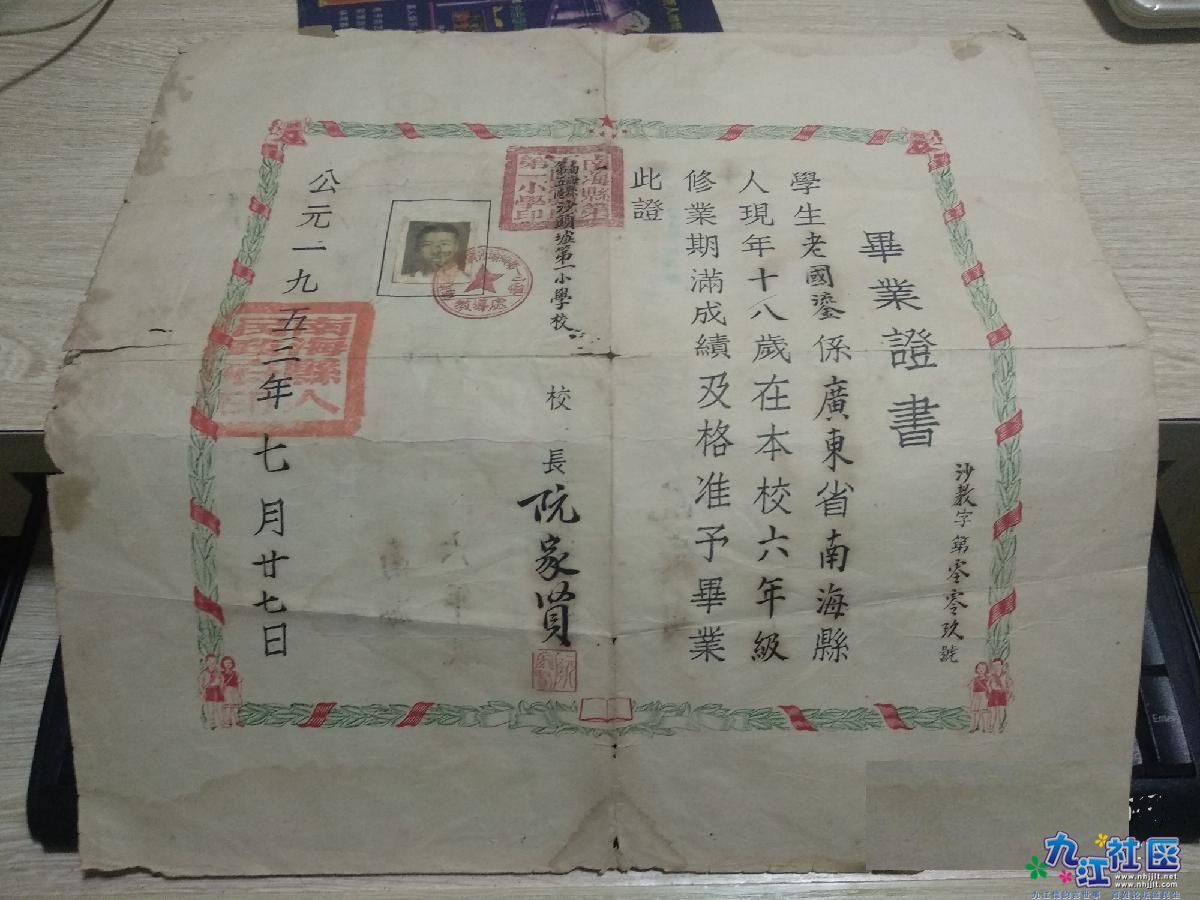 畢業證書
沙教字第零零玖號
學生老國鎏係廣東省南海縣
人現年十八歲在本校六年級
修業期滿成績及格准予畢業
此證
南海縣第五區沙頭墟第一小學校
校長阮家賢
公元一九五三年七月廿七日
教導處
Enter
九江社区
www.nhjjlt.net
www.nhjjlt.com